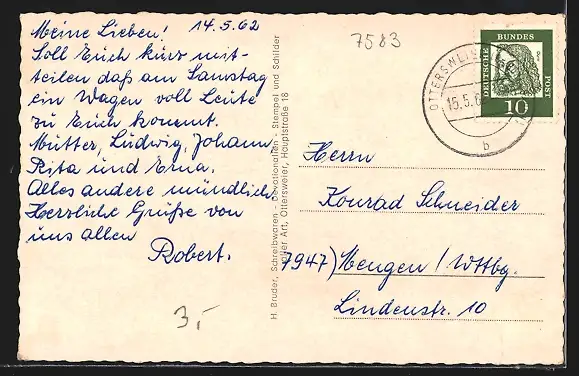 Meine Lieben! 14.5.62
Soll Euch kurz mit-
teilen daß am Samstag
ein Wagen voll Leute
zu Euch kommt.
Mutter, Ludwig, Johann,
Rita und Erna.
Alles andere mündlich
Herzliche Grüße von
uns allen
Robert.
3,-
H. Bruder, Schreibwaren - Devotionalien - Stempel und Schilder
aller Art, Ottersweier, Hauptstraße 18
7583
OTTERSWEI
15.5.6
b
DEUTSCHE
BUNDES
POST
10
Herrn
Konrad Schneider
7947) Mengen / Wttbg.
Lindenstr. 10